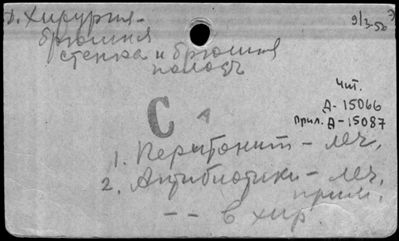 Хирургия-
брюшная
стенка и брюшная
полость
9/3-56
Чит.
Д-15066
прил. Д-15087
С
1. Перитонит - леч.
2. Антибиотики - леч.
прим.
-- в хир.